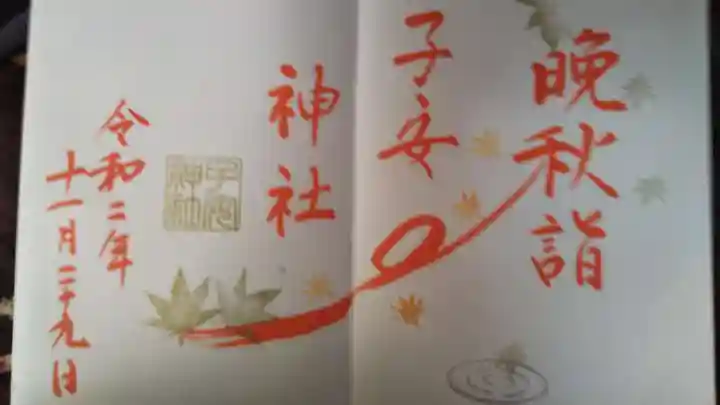 晩秋詣
子安
神社
子安
神社
令和二年
十一月二十九日